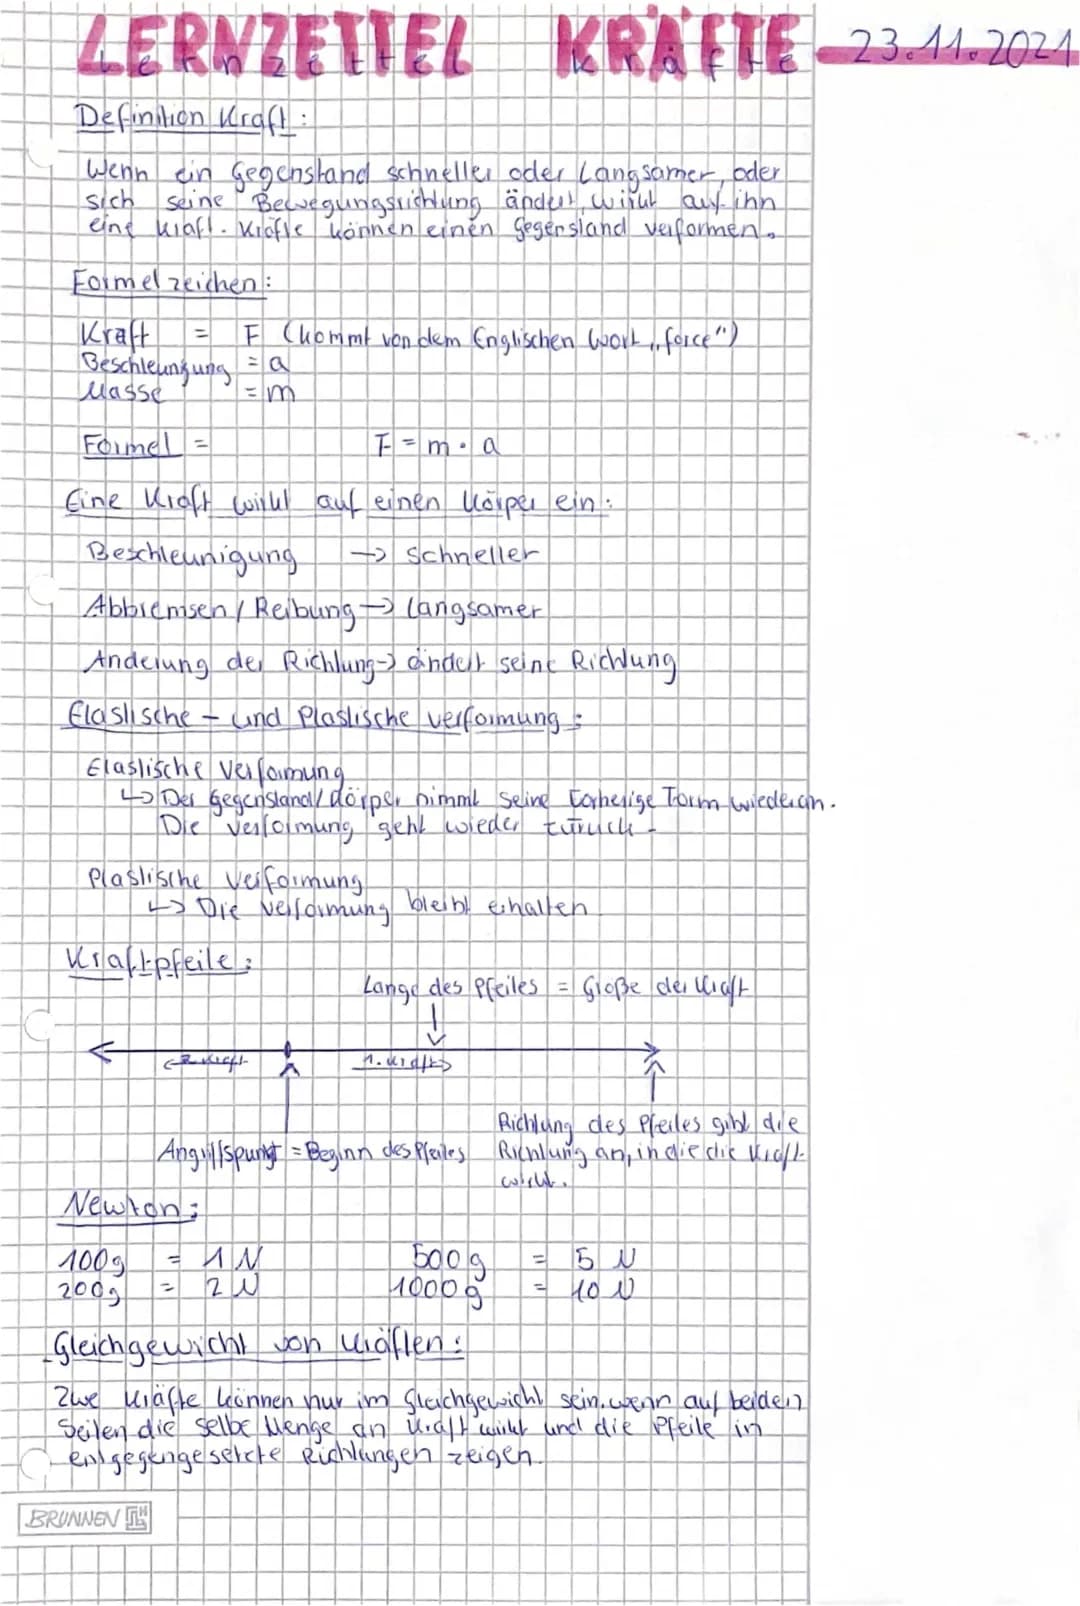 LERNZETTEL KRÄFTE 23.11.2021
Lernzettel Kräfte
Definition Kraft:
Wenn ein Gegenstand schneller oder Langsamer, oder
sich seine Bewegungsrichtung ändert, wirkt auf ihn
eine Kraft. Kräfte können einen Gegenstand verformen.
Formelzeichen:
Kraft = F (kommt von dem Englischen Wort „force")
Beschleungung = a
Masse = m
Formel = F = m · a
Eine Kraft wirkt auf einen Körper ein:
Beschleunigung → schneller
Abbremsen / Reibung → langsamer
Änderung der Richtung → ändert seine Richtung
Elastische - und Plastische verformung:
Elastische Verformung
↳ Der Gegenstand/Körper nimmt seine Vorherige Form wieder an.
Die Verformung geht wieder zurück.
Plastische Verformung
↳ Die Verformung bleibt erhalten
Kraftpfeile:
Länge des Pfeiles = Größe der Kraft
2. Kraft 1. Kraft
Angriffspunkt = Beginn des Pfeiles
Richtung des Pfeiles gibt die
Richtung an, in die die Kraft
wirkt.
Newton:
100g = 1 N 500g = 5 N
200g = 2 N 1000g = 10 N
Gleichgewicht von Kräften:
Zwe Kräfte können nur im Gleichgewicht sein, wenn auf beiden
Seiten die selbe Menge an Kraft wirkt und die Pfeile in
entgegengesetzte Richtungen zeigen.
BRUNNEN